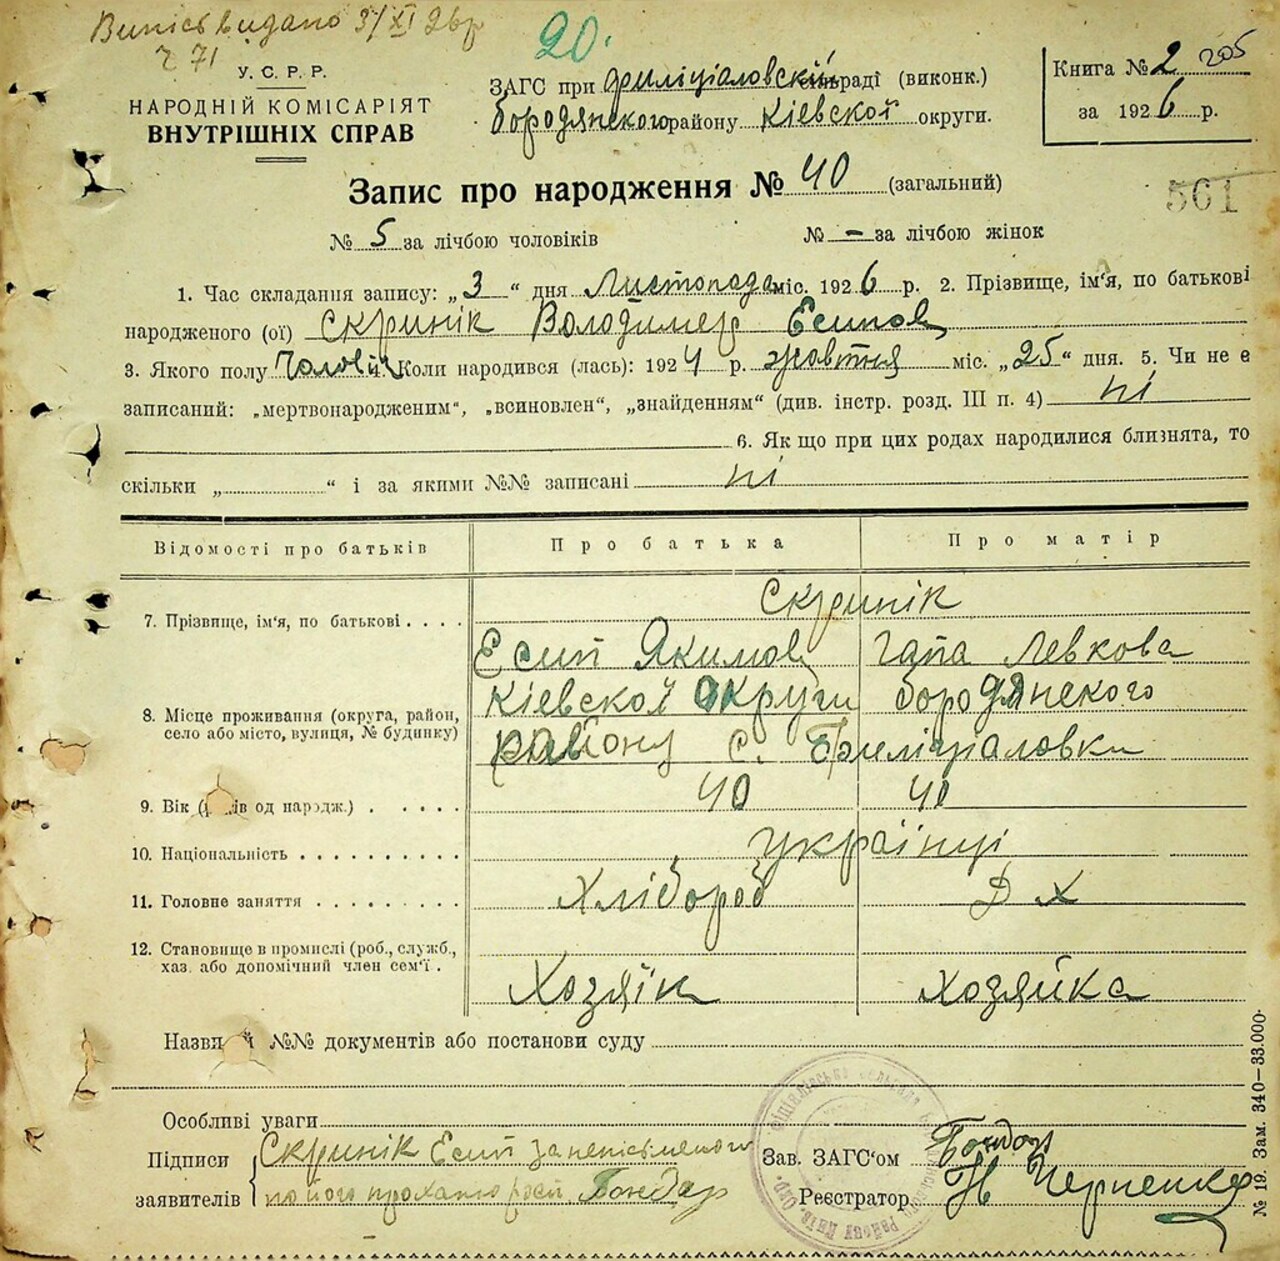 Випісь видано 3/XI 26 р
Ч 71
20.
У. С. Р. Р.
НАРОДНІЙ КОМІСАРІЯТ
ВНУТРІШНІХ СПРАВ
ЗАГС при раді (виконк.)
бородянского району Кіевскої округи.
Книга № 2 205
за 1926 р.
Запис про народження № 40 (загальний)
561
№ 5 за лічбою чоловіків № - за лічбою жінок
1. Час складання запису: „3“ дня Листопада міс. 1926 р. 2. Прізвище, ім'я, по батькові
народженого (ої) Скринік Володимер Есипов
3. Якого полу Чолові Коли народився (лась): 1924 р. жовтня міс. „25“ дня. 5. Чи не є
записаний: „мертвонародженим“, „всиновлен“, „знайденням“ (див. інстр. розд. III п. 4) ні
6. Як що при цих родах народилися близнята, то
скільки „ “ і за якими №№ записані ні
Відомості про батьків Про батька Про матір
Скринік
7. Прізвище, ім'я, по батькові . . . .
Есип Якимов Гапа Левкова
Кіевскої округи бородянского
8. Місце проживання (округа, район,
село або місто, вулиця, № будинку)
району с.
9. Вік ( ів од народж.) . . . . . 40 40
10. Національність . . . . . . . . . . українці
11. Головне заняття . . . . . . . . . Хлібороб Д Х
12. Становище в промислі (роб., служб.,
хаз. або допомічний член сем'ї .
Хозяїн хозяйка
Назви й №№ документів або постанови суду
Особливі уваги
Підписи
заявителів
Скринік Есип занепісьменого
по його проханю росп Бондар
Зав. ЗАГС'ом Бондар
Реєстратор Н Черненко
№ 19. Зам. 340—33.000·